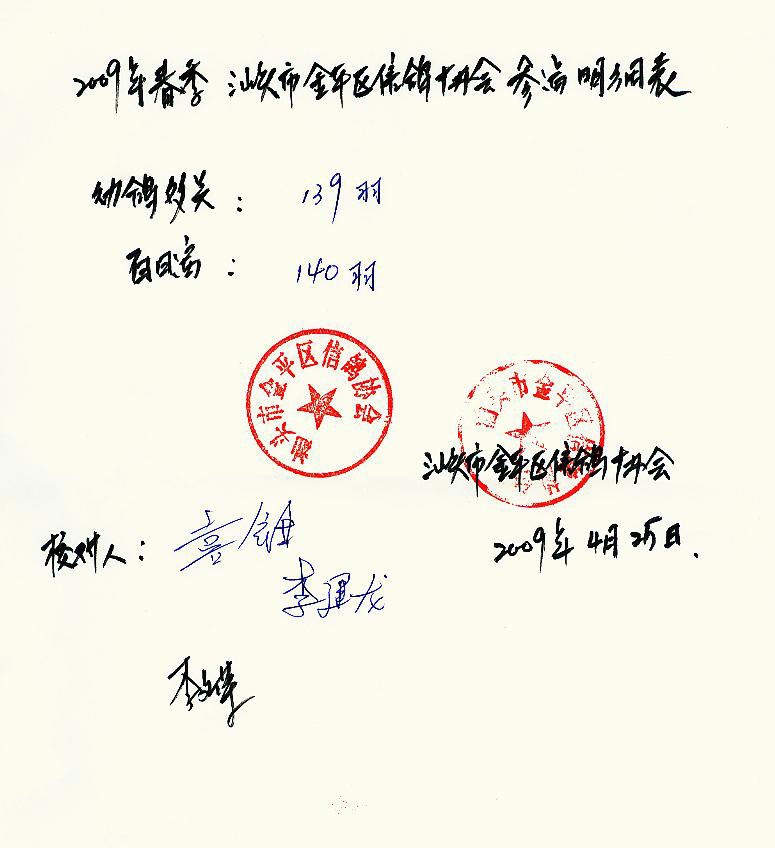 2009年春季 汕头市金平区信鸽协会参赛明细表
幼鸽双关： 139羽
百日赛： 140羽
汕头市金平区信鸽协会
汕头市金平区信鸽协会
汕头市金平区信鸽协会
2009年4月25日.
核对人：
李建龙